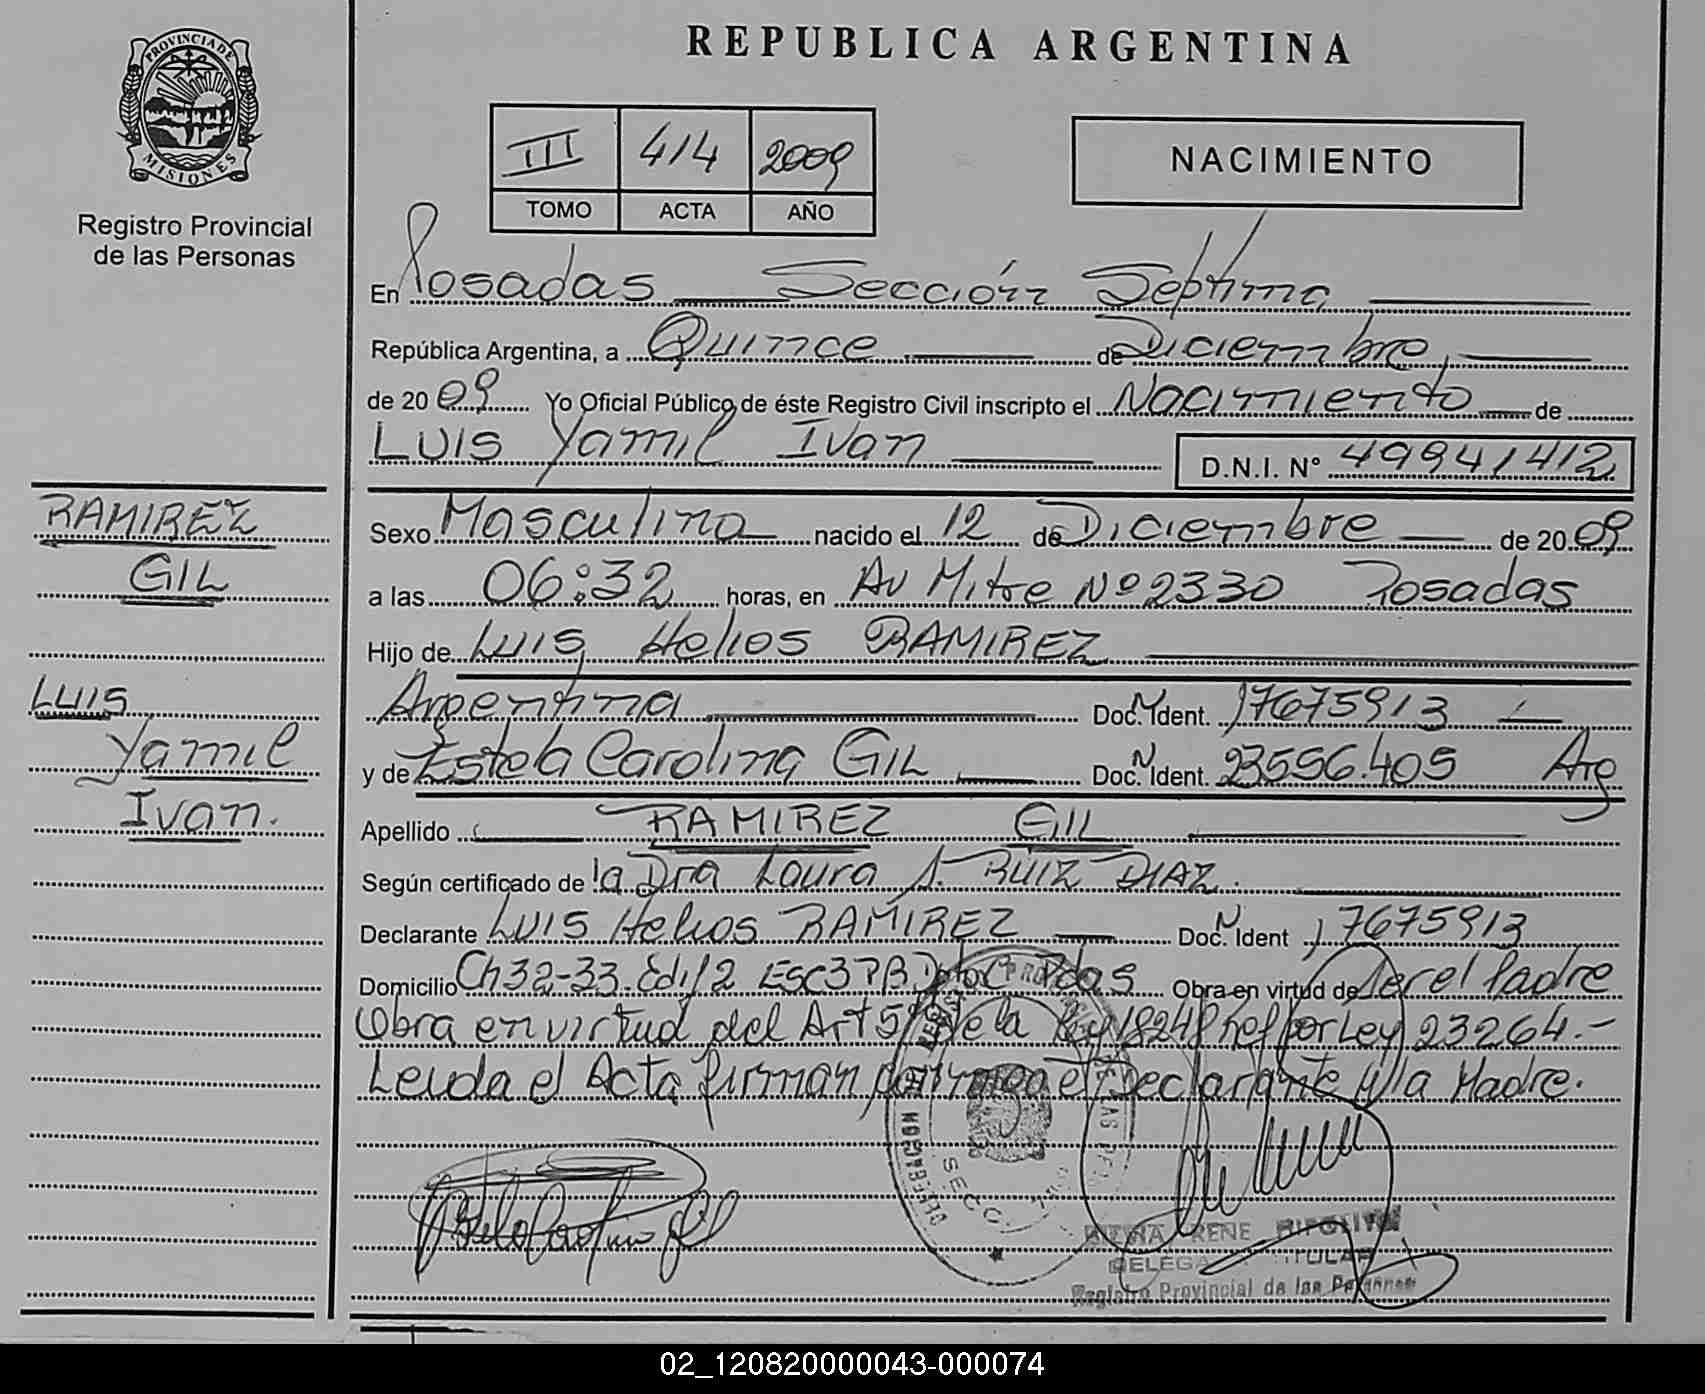 PROVINCIA DE
MISIONES
Registro Provincial
de las Personas
REPUBLICA ARGENTINA
III 414 2009
TOMO ACTA AÑO
NACIMIENTO
En Posadas Sección Septima
República Argentina, a Quince de Diciembre
de 2009 Yo Oficial Público de éste Registro Civil inscripto el Nacimiento de
LUIS Yamil Ivan D.N.I. N° 49941412
RAMIREZ
GIL
LUIS
Yamil
Ivan.
Sexo Masculino nacido el 12 de Diciembre de 2009
a las 06:32 horas, en Av Mitre Nº 2330 Posadas
Hijo de Luis Helios RAMIREZ
Argentina Doc. Ident. N 17675913
y de Estela Carolina GIL Doc. Ident. N 23556.405 Arg
Apellido RAMIREZ GIL
Según certificado de la Dra Laura S. RUIZ DIAZ.
Declarante LUIS Helios RAMIREZ Doc. Ident N 17675913
Domicilio Ch 32-33. Edif 2 Esc 3 PB Dpto C Pdas Obra en virtud de Ser el Padre
Obra en virtud del Art 5º de la Ley 18248 ref por Ley 23264.-
Leida el Acta firman conmigo el Declarante y la Madre.
SECC.
RENE
TITULAR
Registro Provincial de las Personas
02_120820000043-000074